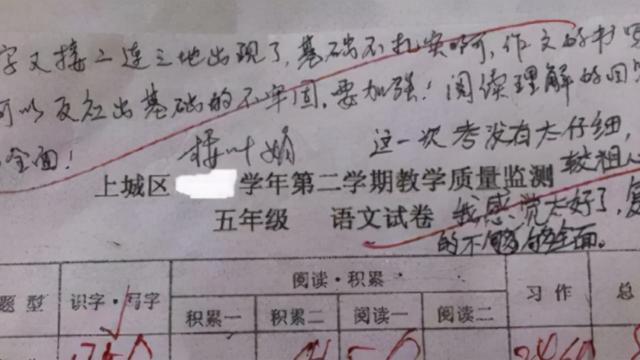 字又接二连三地出现了,基础不扎实啊,作文的书写
可以反应出基础的不牢固,要加强!阅读理解的回
全面!
这一次考没有太仔细,
较粗心
上城区 学年第二学期教学质量监测
五年级 语文试卷
我感觉太好了,复
的不够全面。
题型 识字·写字 阅读·积累 习作 总
积累一 积累二 阅读一 阅读二